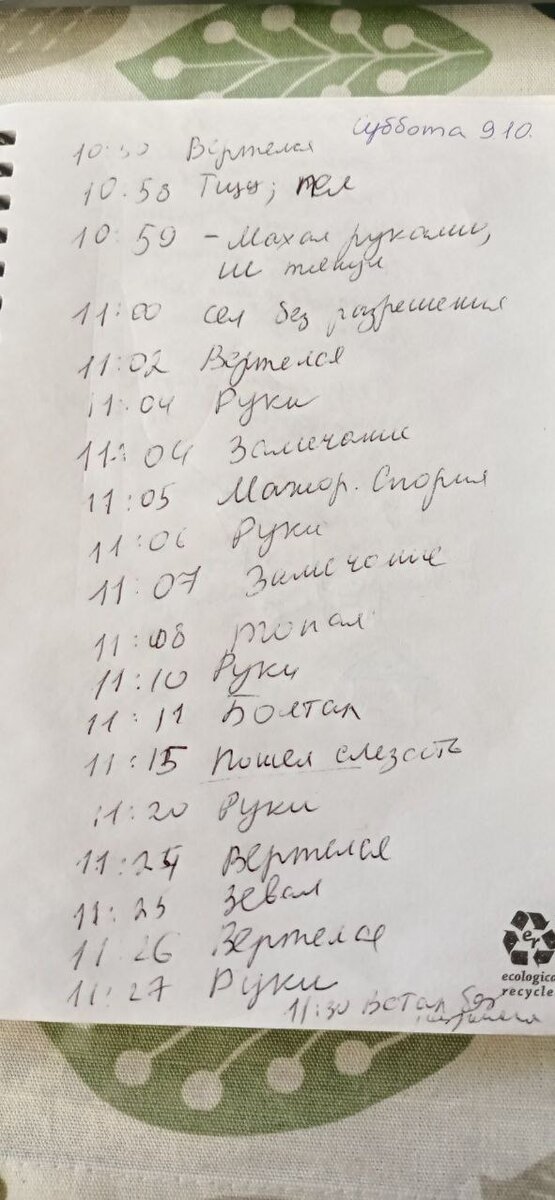 суббота 9 10.
10:50 Вертелся
10.58 пел
10:59 - Махал руками,
не
11:00 сел без разрешения
11:02 Вертелся
11:04 Руки
11:04 Замечание
11:05 Спорил
11:06 Руки
11:07 Замечание
11:08
11:10 Руки
11:11 Болтал
11:15 Пошел
11:20 Руки
11:24 Вертелся
11:25 Зевал
11:26 Вертелся
11:27 Руки
11:30 Встал без
er
ecologica
recycle